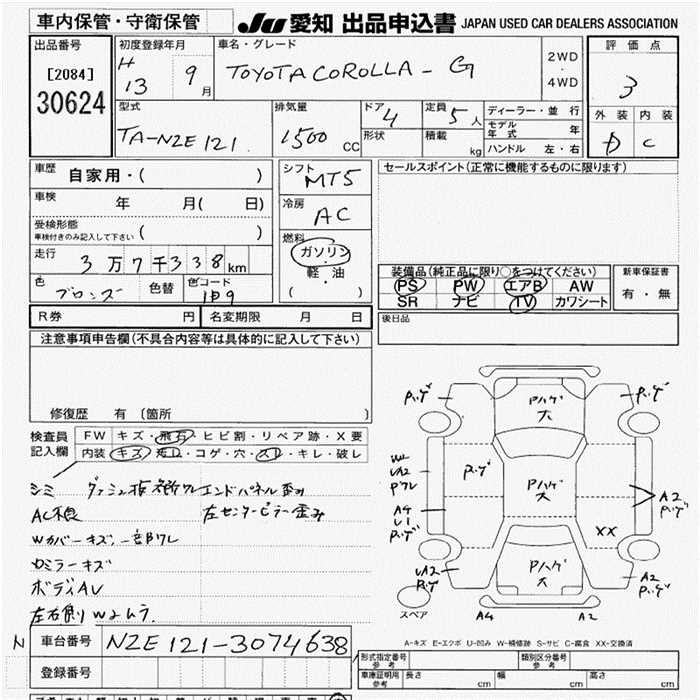 車内保管・守衛保管 JU 愛知 出品申込書 JAPAN USED CAR DEALERS ASSOCIATION
出品番号 初度登録年月 車名・グレード 評価点
[2084] H 13 9月 TOYOTA COROLLA - G 2WD・4WD 3
30624
型式 排気量 ドア 4 定員 5人 ディーラー・並行 外装 内装
TA-NZE121. 1500 CC 形状 積載 kg モデル年式 年 D C
ハンドル 左・右
車歴 自家用・( ) シフト MT5 セールスポイント(正常に機能するものに限ります)
車検 年 月( 日) 冷房 AC
受検形態
車検付きのみ記入して下さい ( )
燃料 ガソリン・軽・油 ( )
走行 3万7千338km 装備品(純正品に限り○をつけてください) 新車保証書
色 ブロンズ 色替 色コード PS PW エアB AW 有・無
SR ナビ TV カワシート
R券 円 名変期限 月 日 後日品
注意事項申告欄(不具合内容等は具体的に記入して下さい)
修復歴 有(箇所 )
検査員記入欄 FW キズ・飛石・ヒビ割・リペア跡・X要
内装 キズ・汚れ・コゲ・穴・スレ・キレ・破レ
シミ エンドパネル歪み
AC不良 左センターピラー歪み
Wカバーキズ、一部ワレ
Dミラーキズ
ボディAU
左右側りWムラ.
パハゲ 大
パハゲ 大
パハゲ 大
XX
A2
A4 A2
スペア
A-キズ E-エクボ U-凹み W-補修跡 S-サビ C-腐食 XX-交換済
N 車台番号 NZE121-3074638
登録番号
形式指定番号 参考 類別区分番号 参考
車庫証明用 参考 長さ cm 幅 cm 高さ cm